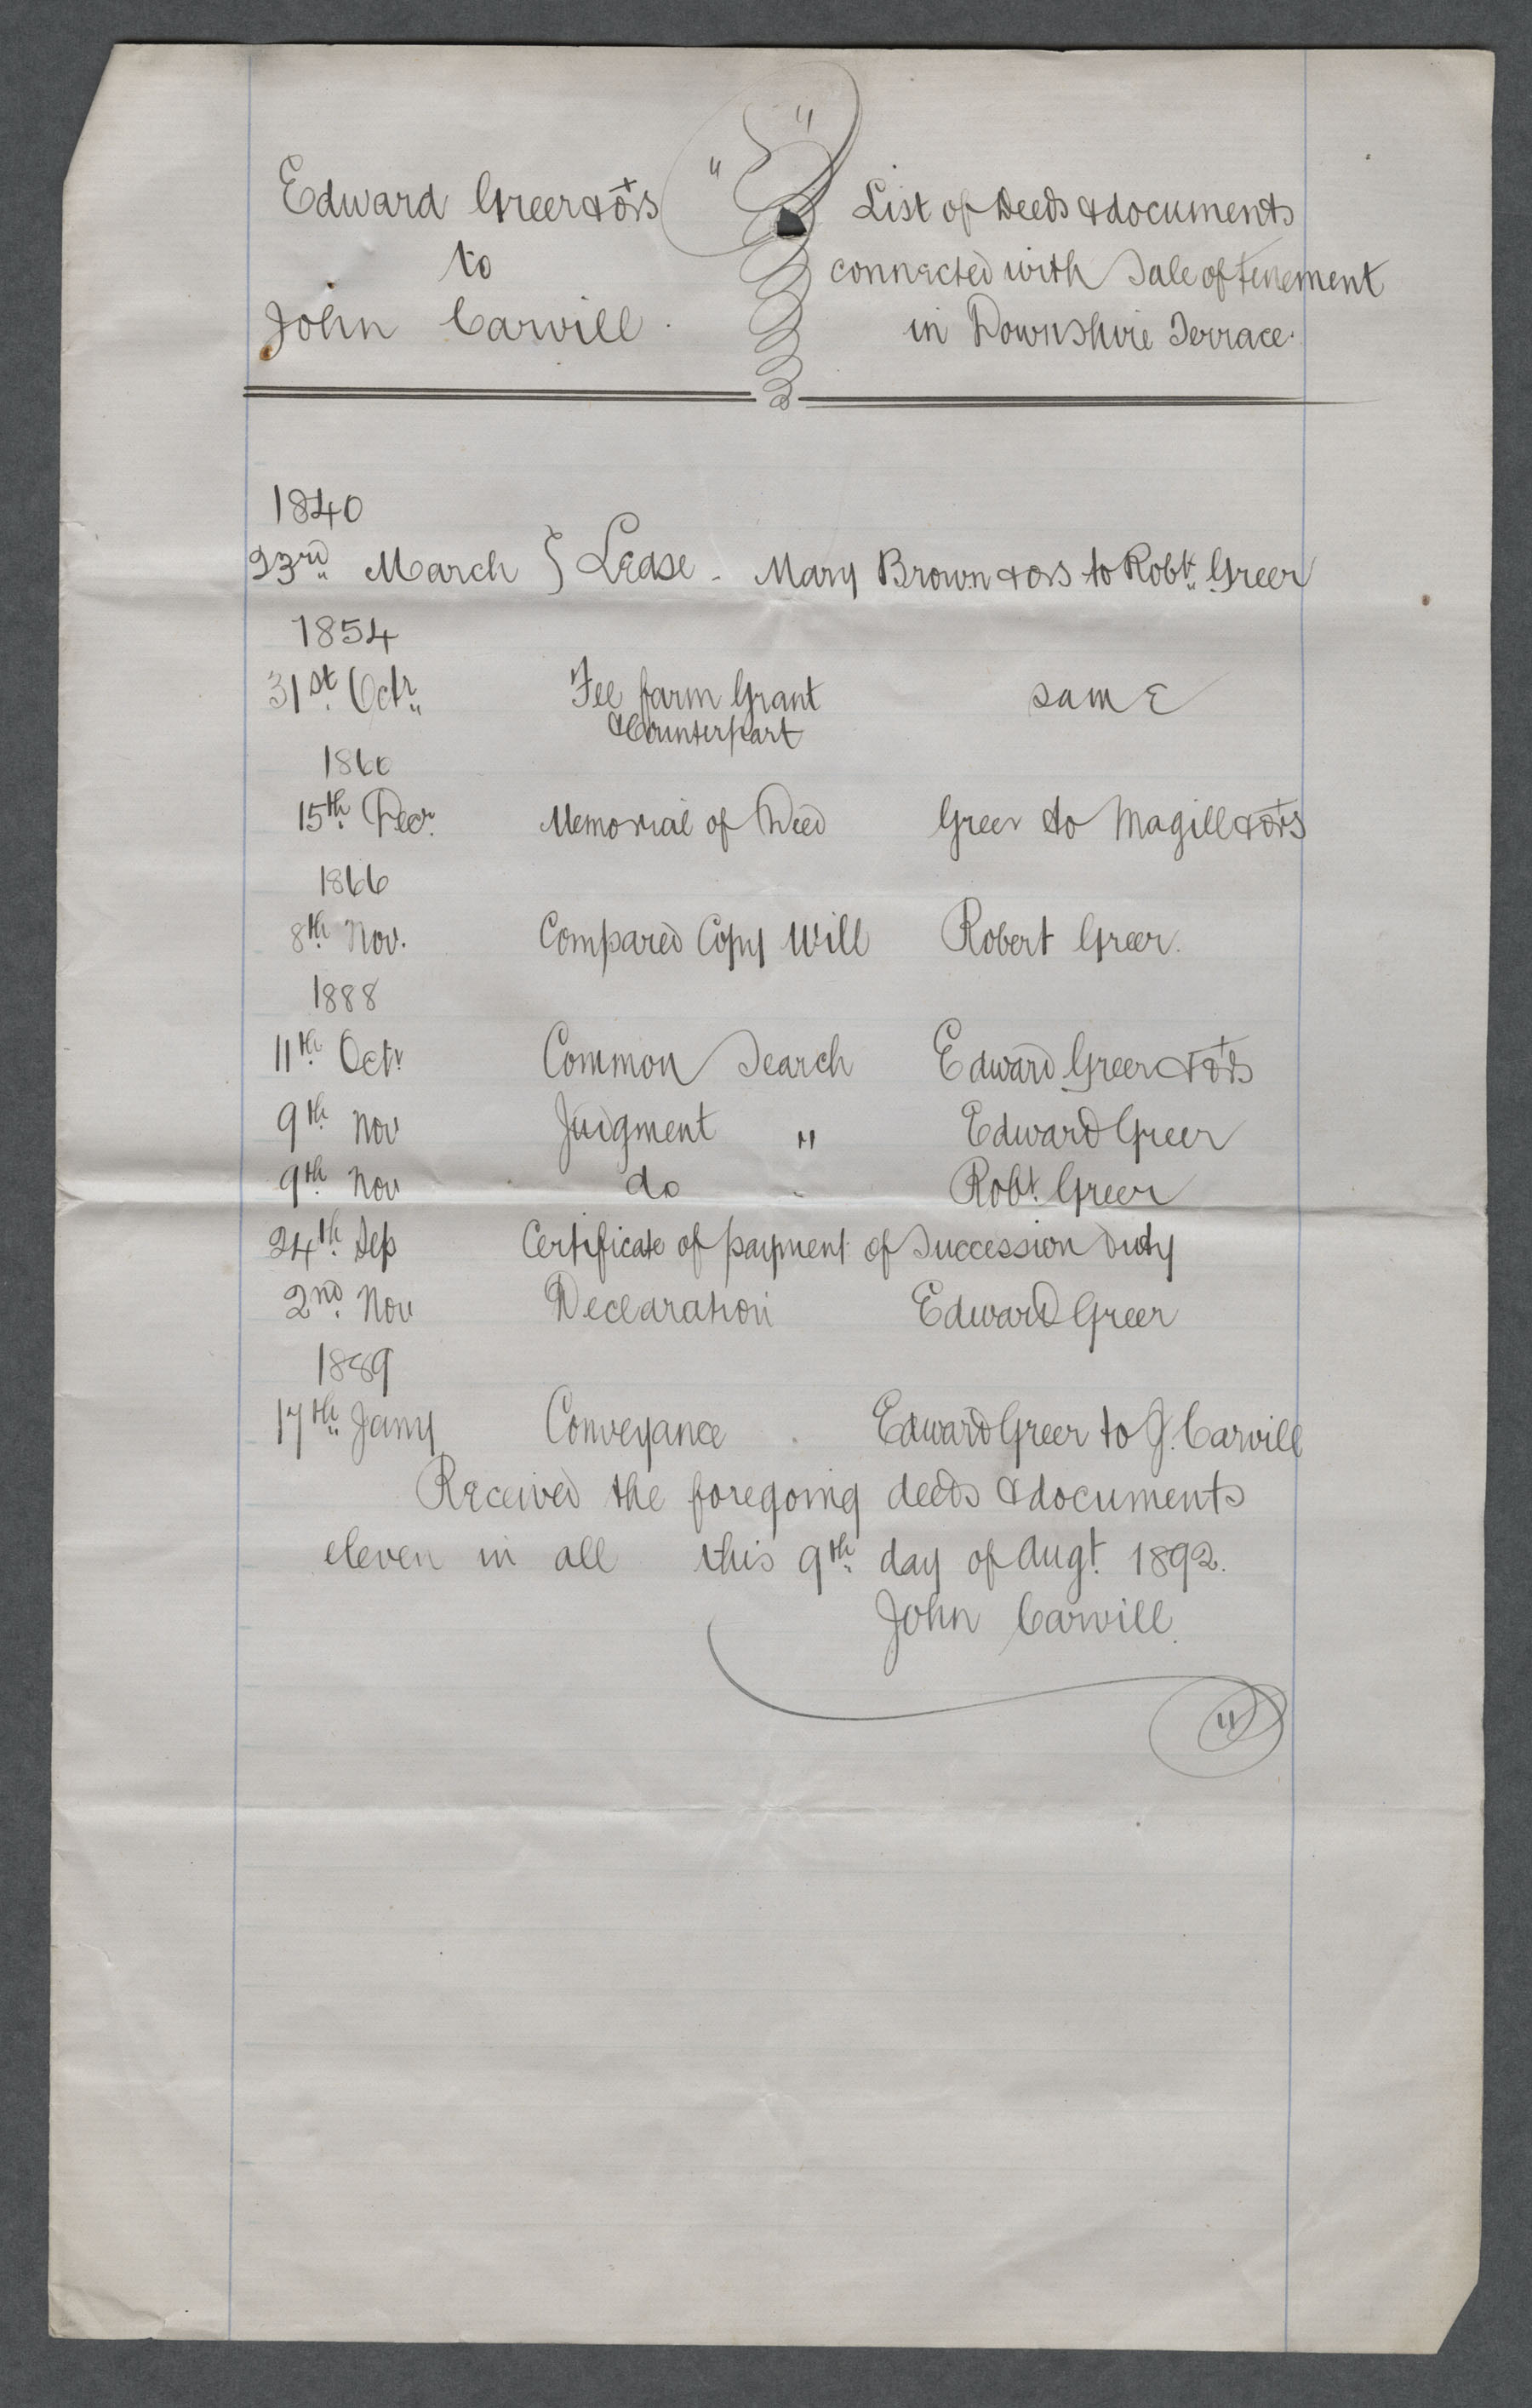 Edward Greer & ors
to
John Carvill.
List of Deeds & documents
connected with Sale of tenement
in Downshire Terrace.
1840
23rd March } Lease - Mary Brown & ors to Robt. Greer
1854
31st Octr. Fee farm Grant same
& Counterpart
1860
15th Decr. Memorial of Deed Greer to Magill & ors
1866
8th Nov. Compared Copy Will Robert Greer.
1888
11th Octr. Common Search Edward Greer & ors
9th Nov Judgment " Edward Greer
9th Nov do " Robt. Greer
24th Sep Certificate of payment of Succession Duty
2nd Nov Declaration Edward Greer
1889
17th Jany Conveyance Edward Greer to J. Carvill
Received the foregoing deeds & documents
eleven in all this 9th day of Augt. 1892.
John Carvill.